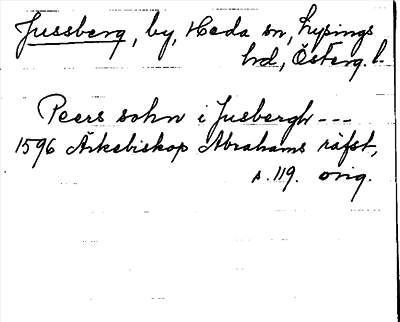 Jussberg, by, Heda sn, Lysings
hd, Österg. l.
Peers sohn i Jusbergh ---
1596 Ärkebiskop Abrahams räfst,
s. 119. orig.